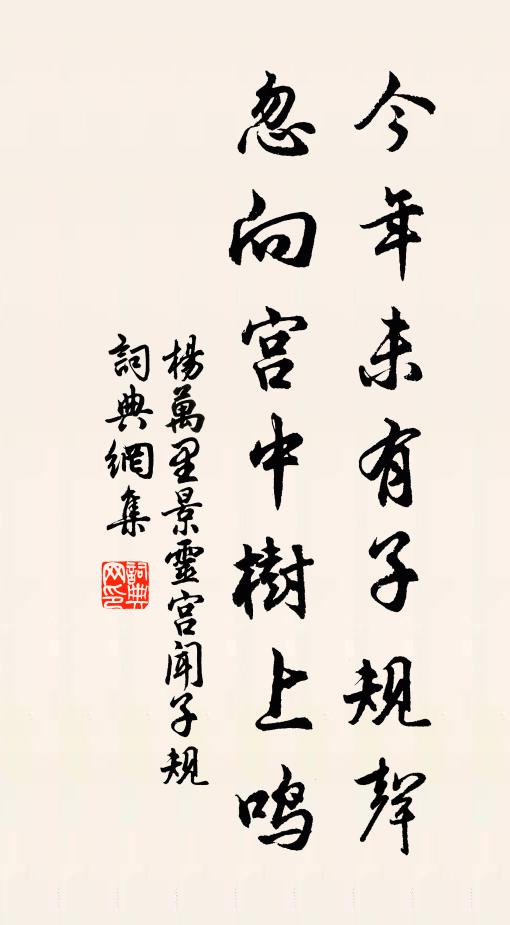 今年未有子規聲
忽向宫中樹上鸣
楊萬里景靈宫闻子規
詞典網集
詞典网印